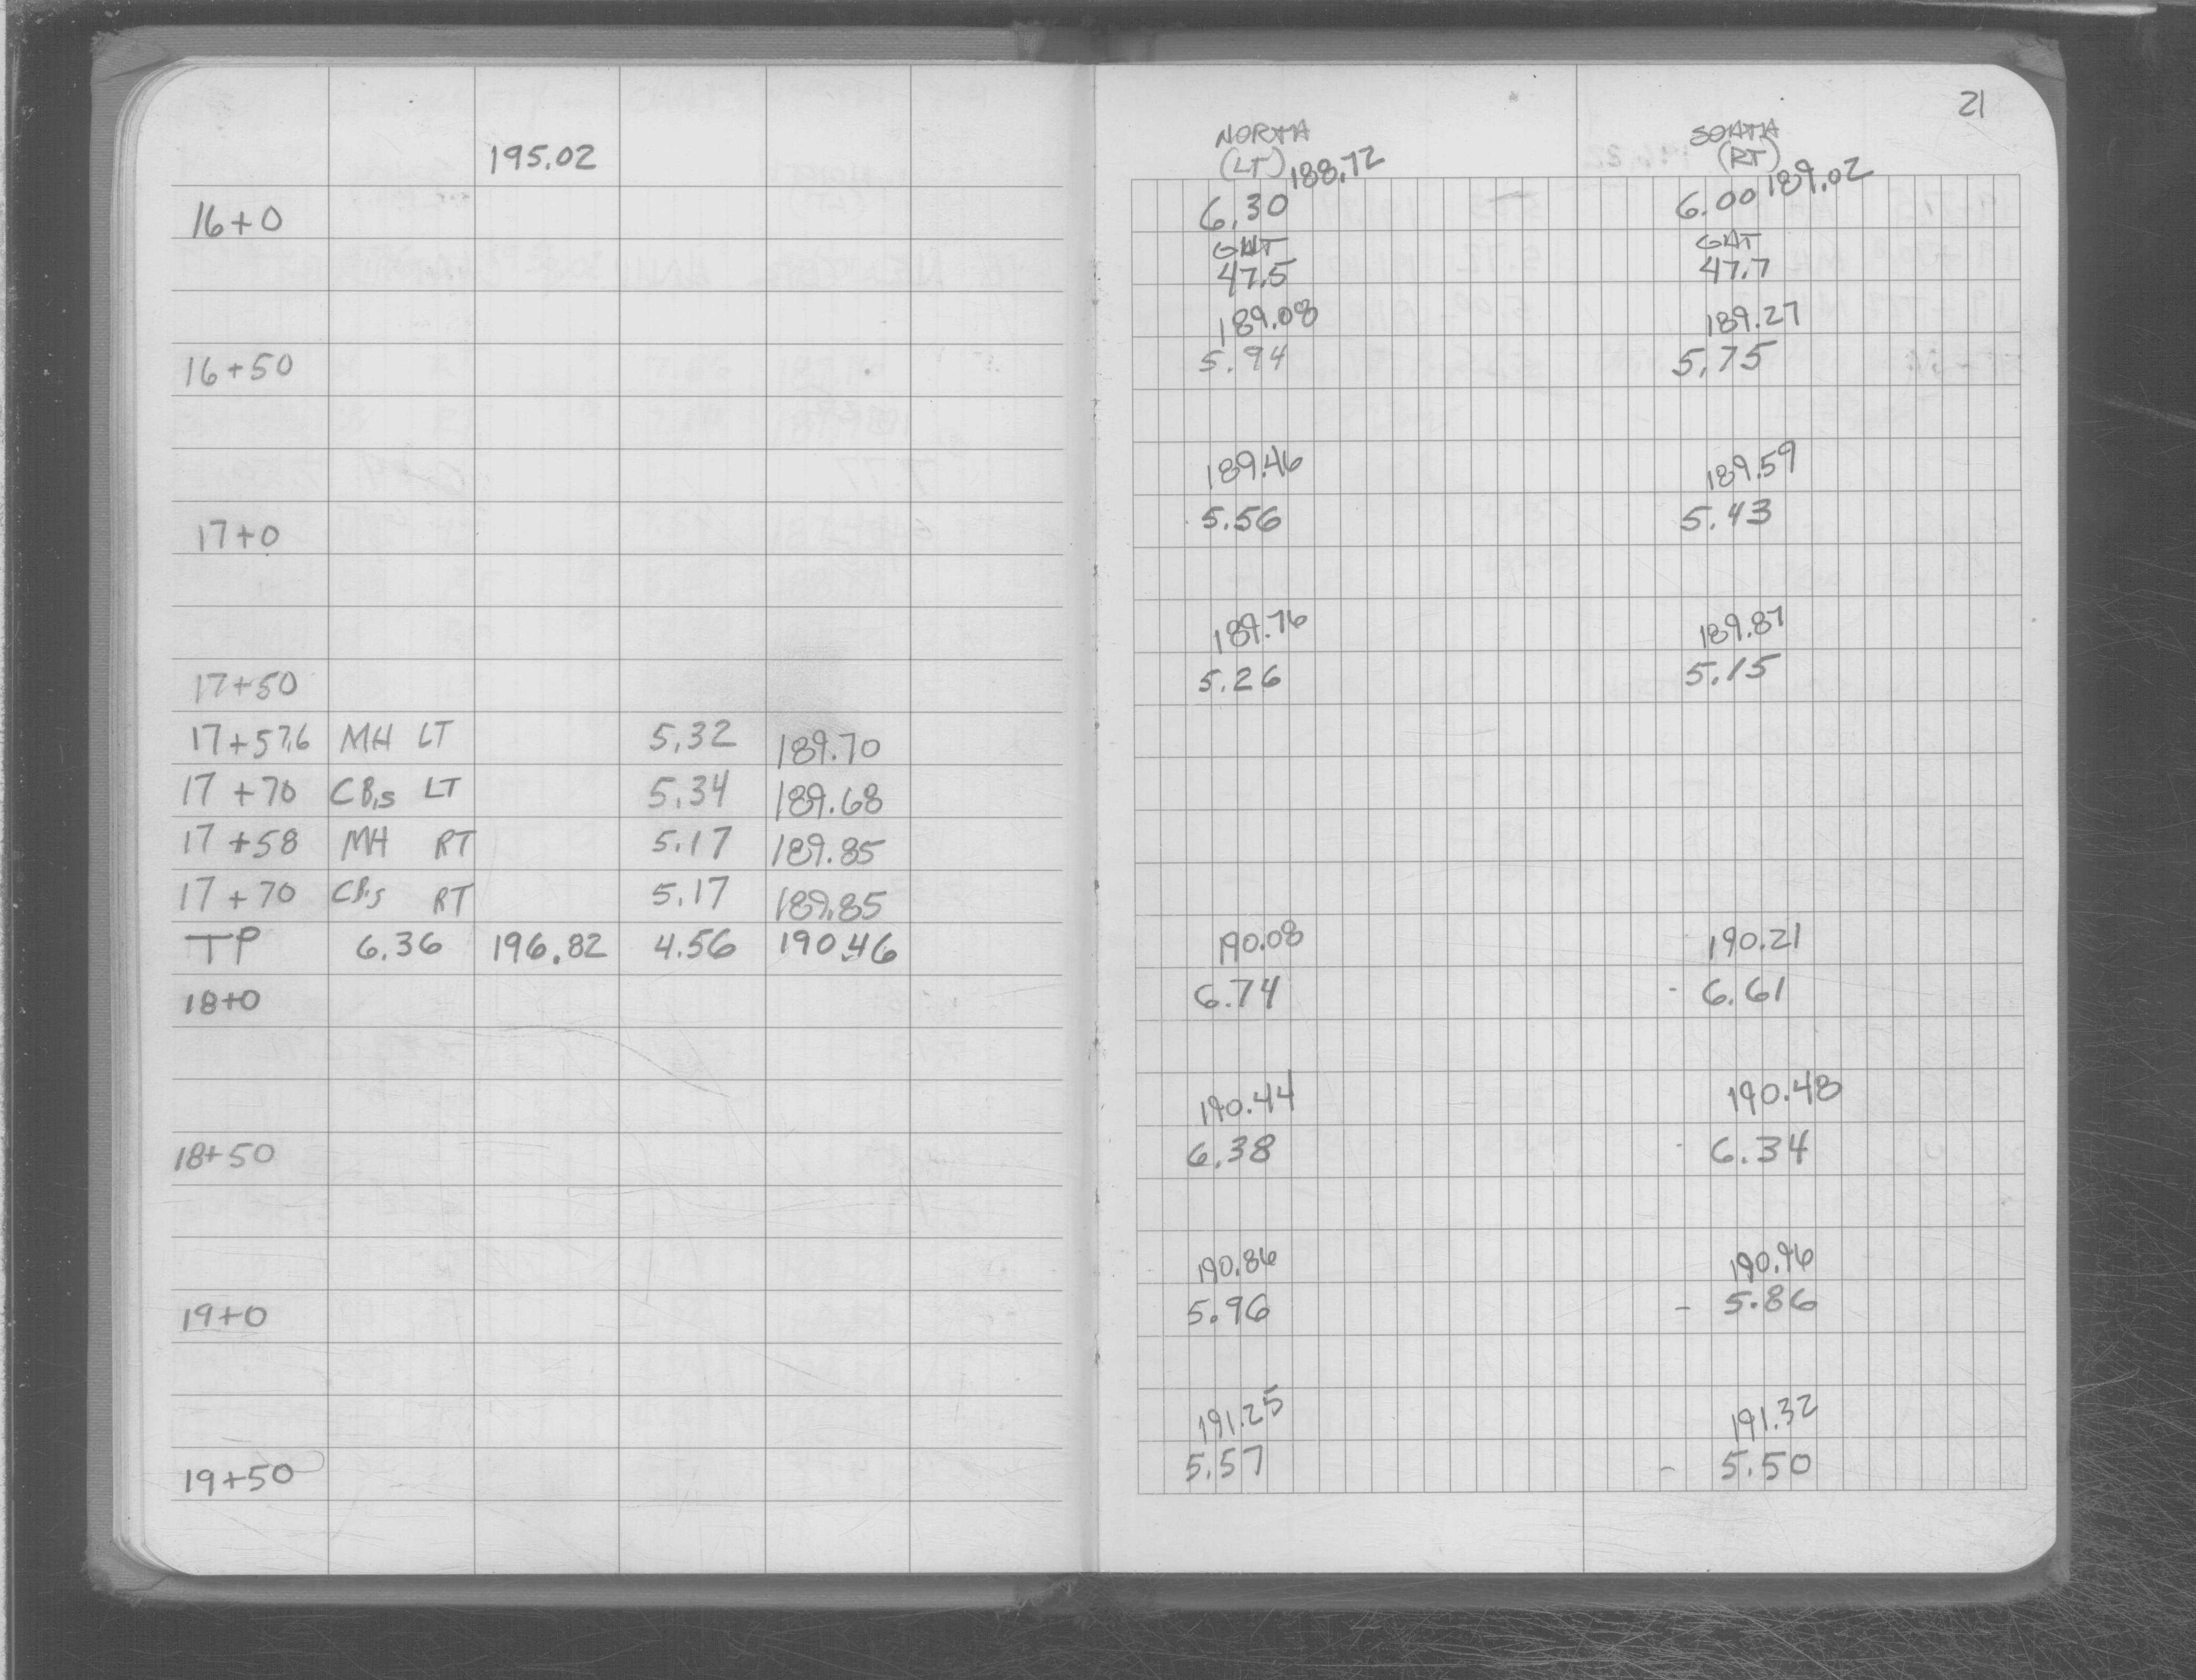 195.02
16+0
16+50
17+0
17+50
17+57.6 MH LT 5.32 189.70
17+70 CB,s LT 5.34 189.68
17+58 MH RT 5.17 189.85
17+70 CB,s RT 5.17 189.85
TP 6.36 196.82 4.56 190.46
18+0
18+50
19+0
19+50
21
NORTH SOUTH
(LT) 188.72 (RT) 189.02
6.30 6.00
GUT GUT
47.5 47.7
189.08 189.27
5.94 5.75
189.46 189.59
5.56 5.43
189.76 189.87
5.26 5.15
190.08 190.21
6.74 - 6.61
190.44 190.48
6.38 - 6.34
190.86 190.96
5.96 - 5.86
191.25 191.32
5.57 - 5.50